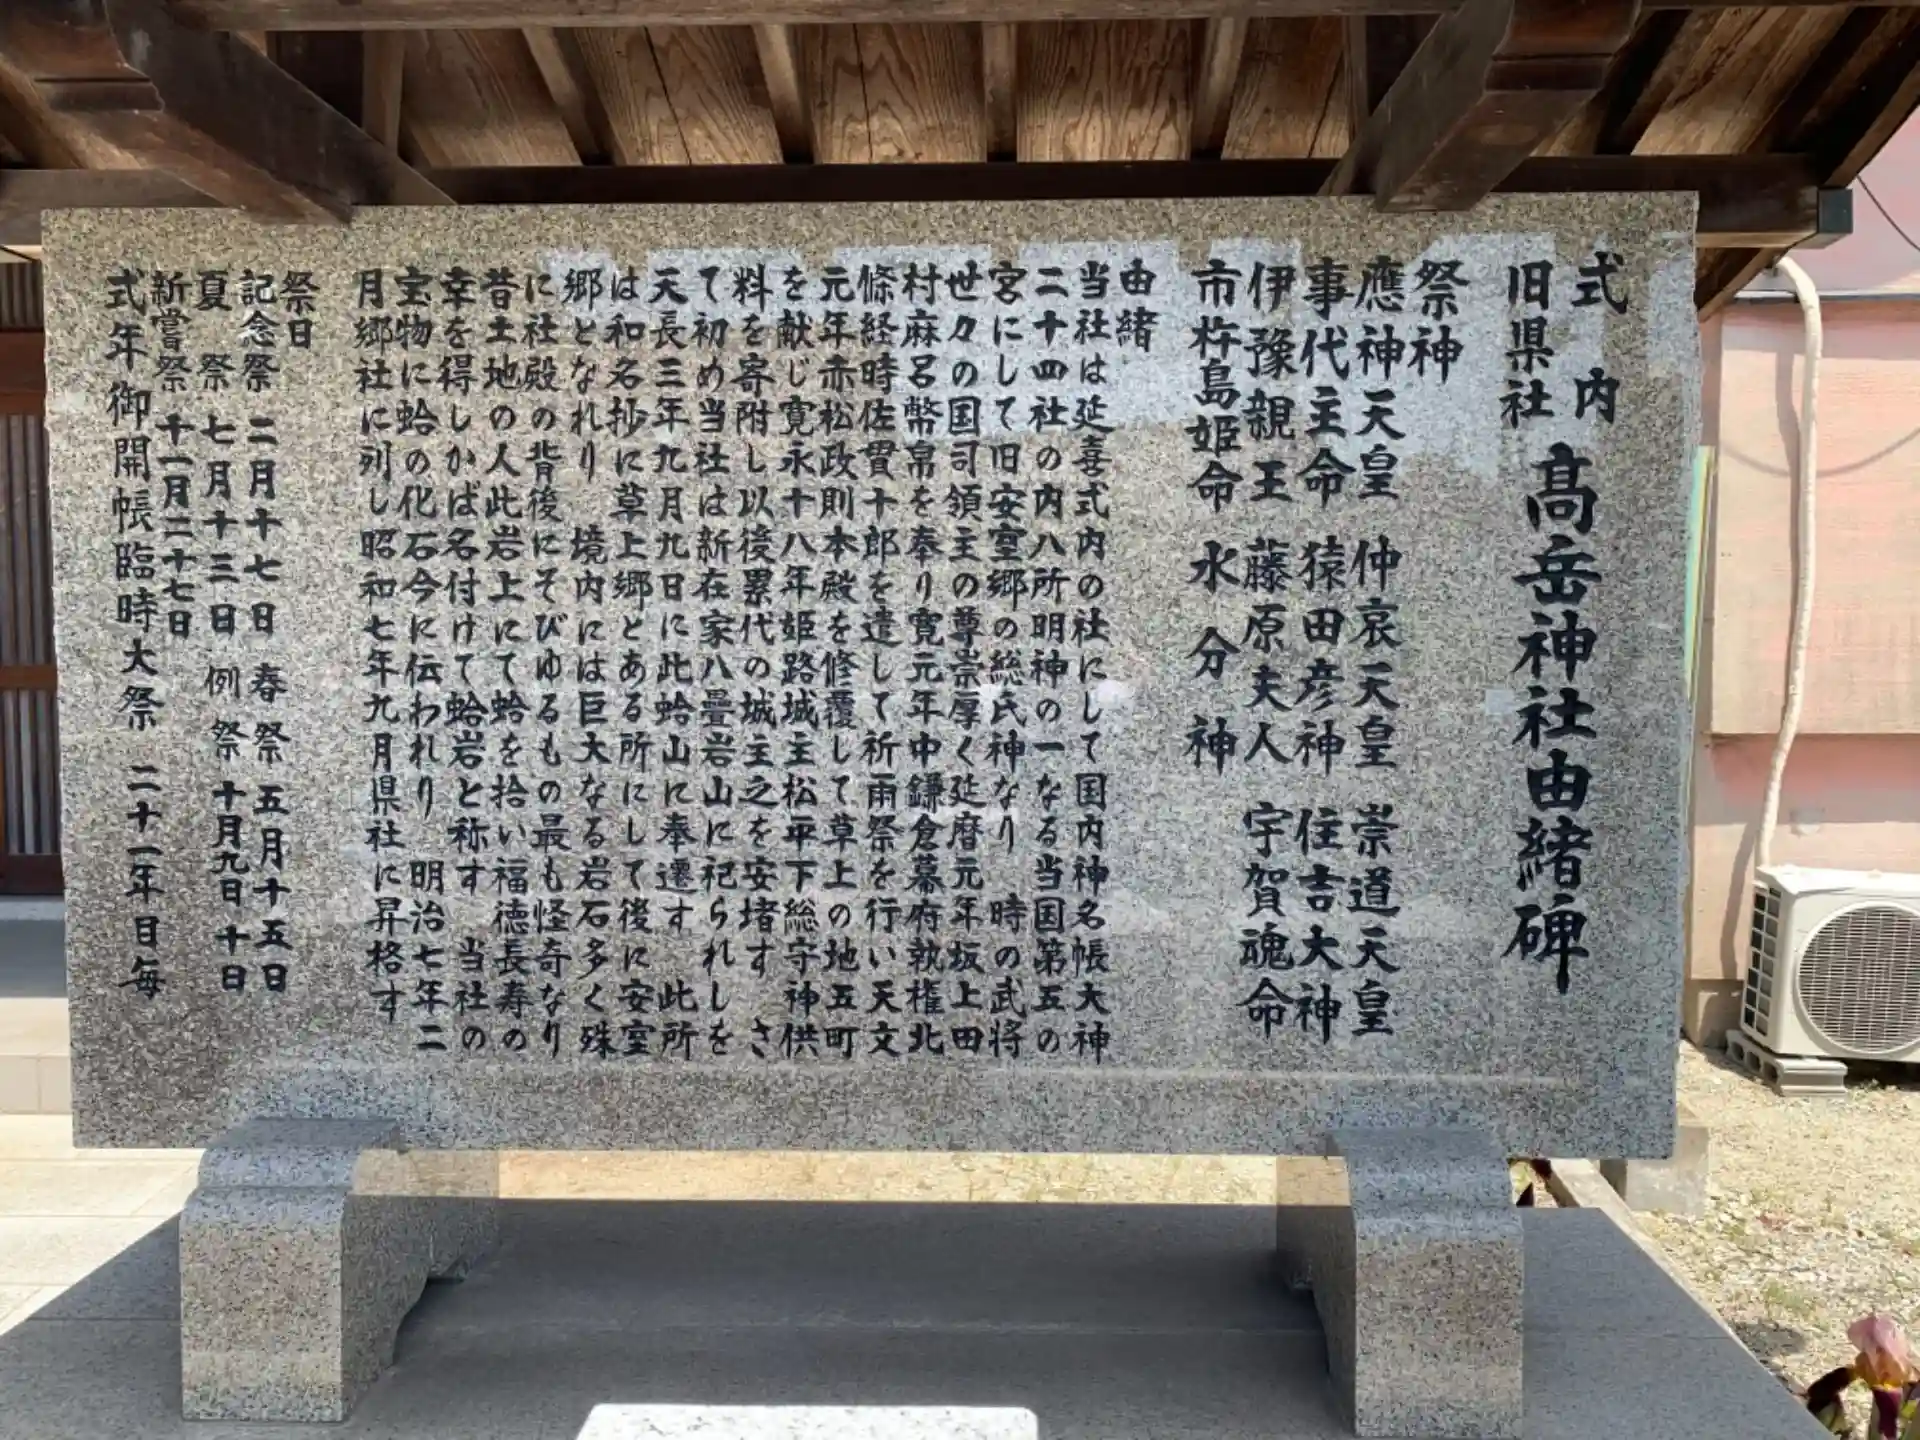 式内
旧県社
髙岳神社由緒碑
祭神
應神天皇 仲哀天皇 崇道天皇
事代主命 猿田彦神 住吉大神
伊豫親王 藤原夫人 宇賀魂命
市杵島姫命 水分神
由緒
当社は延喜式内の社にして国内神名帳大神
二十四社の内八所明神の一なる当国第五の
宮にして旧安室郷の総氏神なり 時の武将
世々の国司領主の尊崇厚く延暦元年坂上田
村麻呂幣帛を奉り寛元年中鎌倉幕府執権北
條経時佐貫十郎を遣して祈雨祭を行い天文
元年赤松政則本殿を修覆して草上の地五町
を献じ寛永十八年姫路城主松平下総守神供
料を寄附し以後累代の城主之を安堵す さ
て初め当社は新在家八疊岩山に祀られしを
天長三年九月九日に此蛤山に奉遷す 此所
は和名抄に草上郷とある所にして後に安室
郷となれり 境内には巨大なる岩石多く殊
に社殿の背後にそびゆるもの最も怪奇なり
昔土地の人此岩上にて蛤を拾い福徳長寿の
幸を得しかば名付けて蛤岩と称す 当社の
宝物に蛤の化石今に伝われり 明治七年二
月郷社に列し昭和七年九月県社に昇格す
祭日
記念祭 二月十七日 春祭 五月十五日
夏祭 七月十三日 例祭 十月九日十日
新嘗祭 十一月二十七日
式年御開帳臨時大祭 二十一年目毎